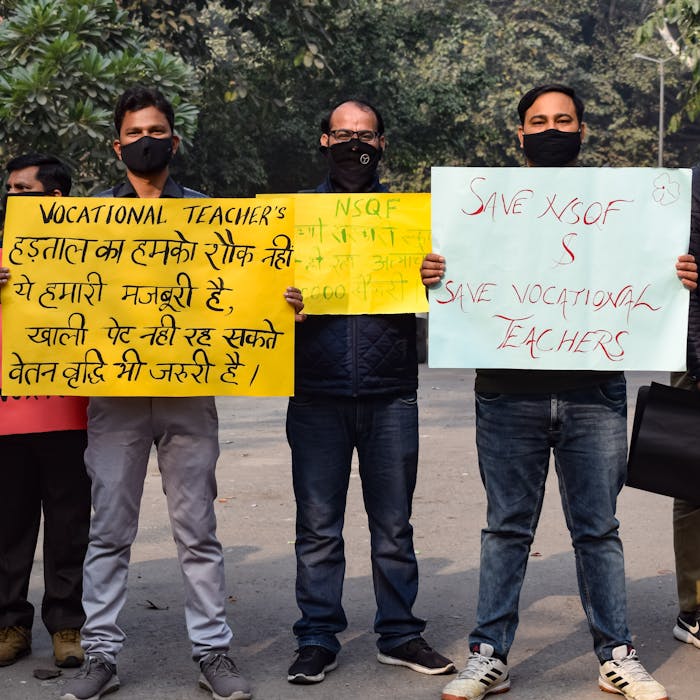 VOCATIONAL TEACHER'S
हड़ताल का हमको शौक नहीं
ये हमारी मजबूरी है,
खाली पेट नही रह सकते
वेतन वृद्धि भी जरुरी है।
NSQF
SAVE NSQF
&
SAVE VOCATIONAL
TEACHERS